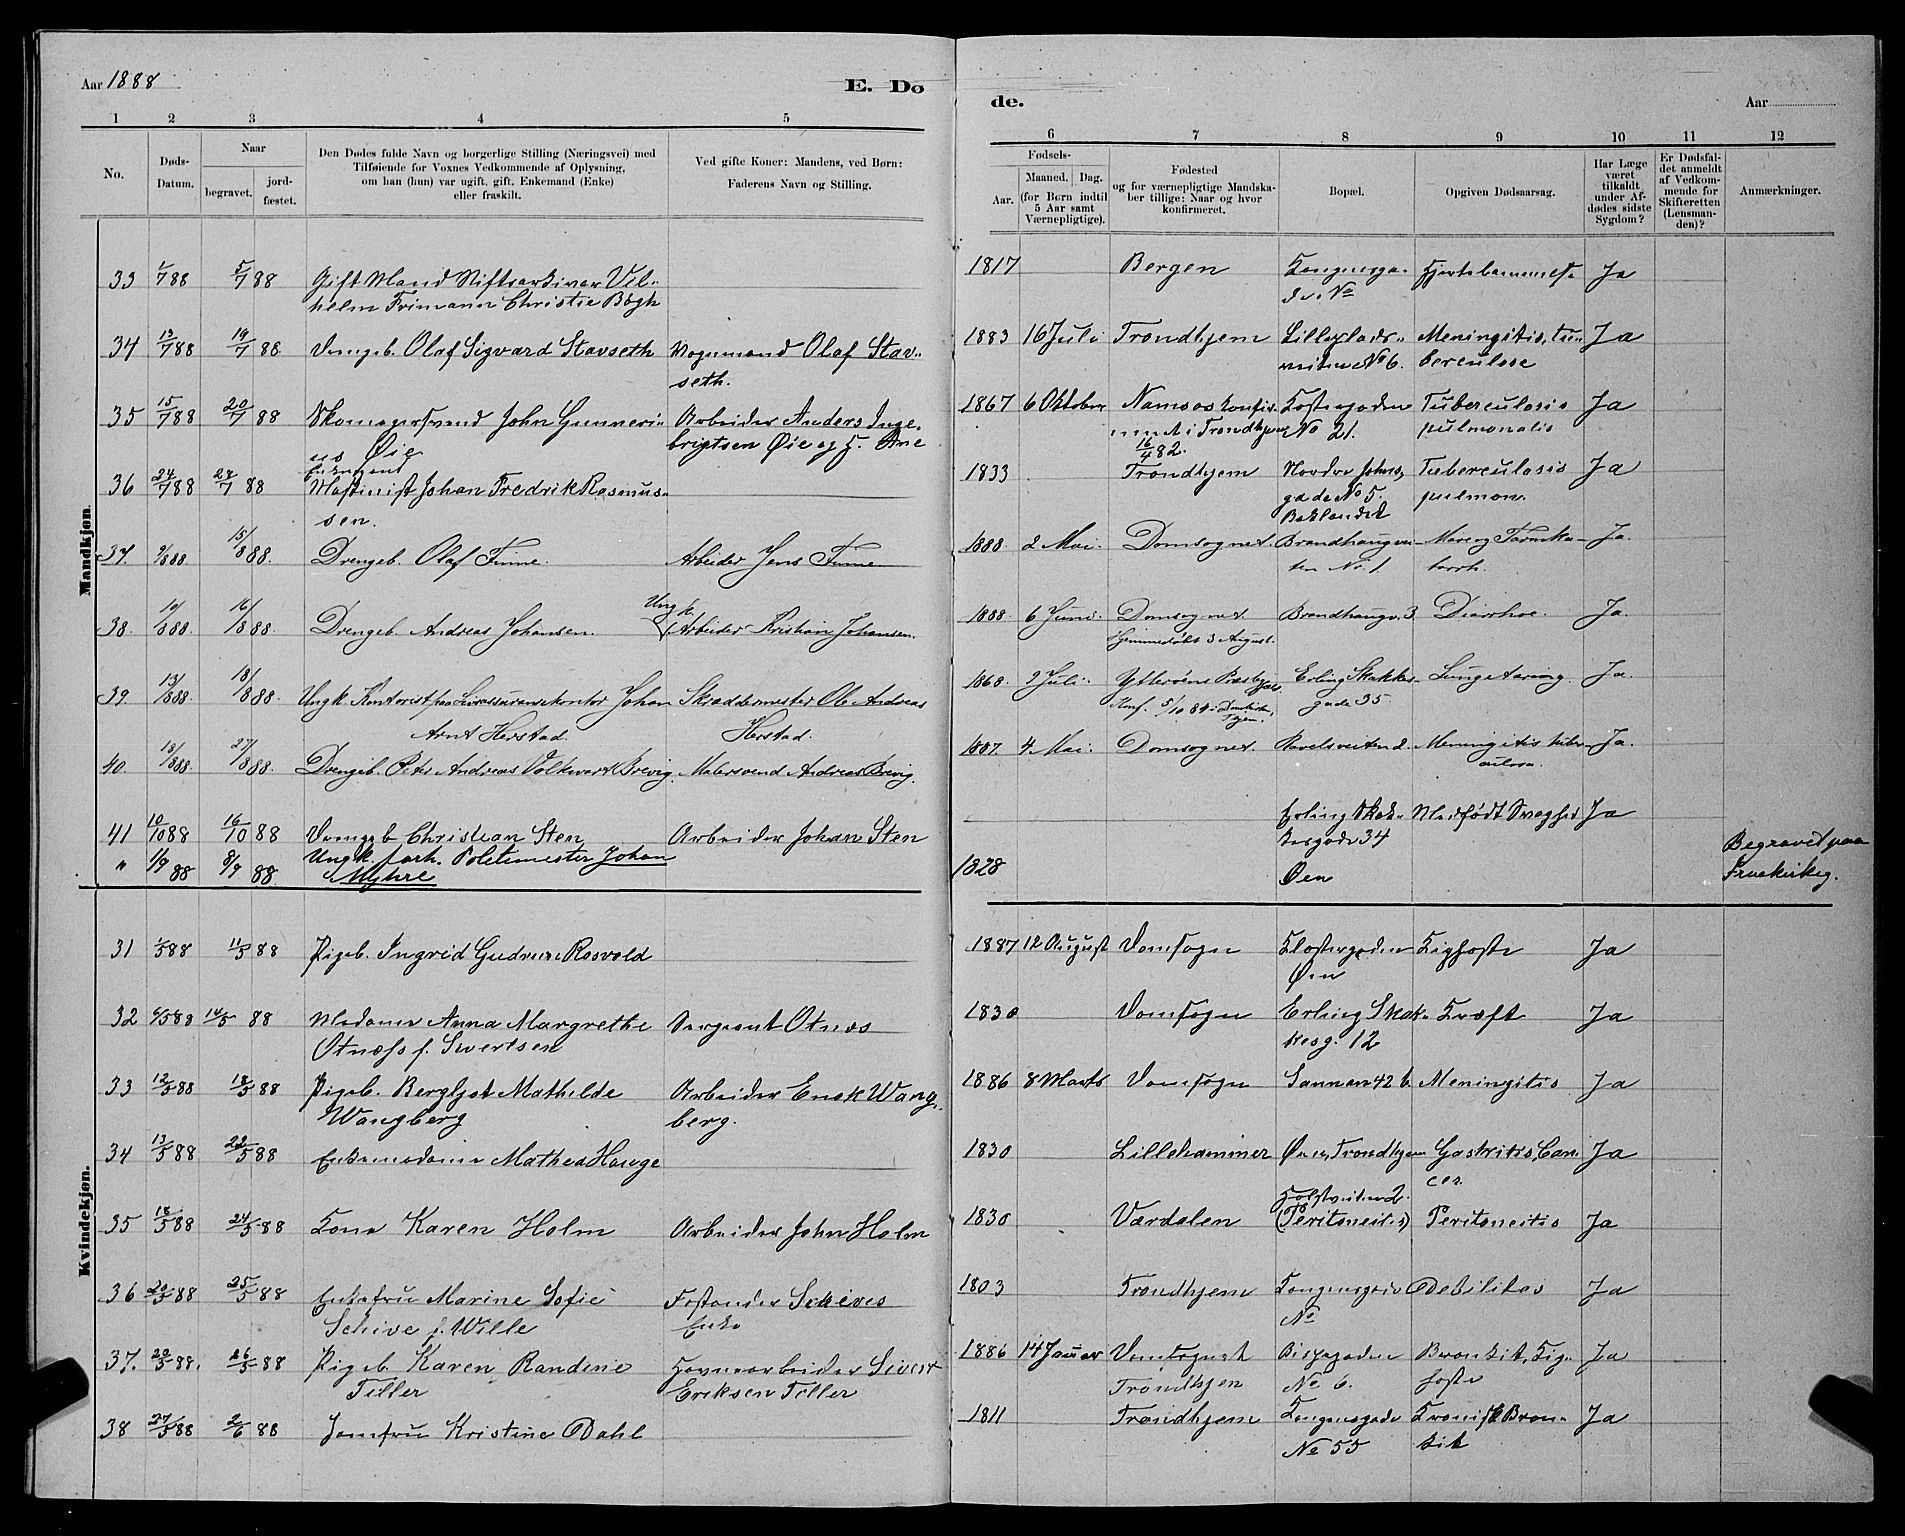 Aar 1888
E. Dø
de.
Aar
1 2 3 4 5
6 7 8 9 10 11 12
No.
Døds-
Datum.
Naar
begravet.
jord-
fæstet.
Den Dødes fulde Navn og borgerlige Stilling (Næringsvei) med
Tilføiende for Voxnes Vedkommende af Oplysning,
om han (hun) var ugift, gift, Enkemand (Enke)
eller fraskilt.
Ved gifte Koner: Mandens, ved Børn:
Faderens Navn og Stilling.
Fødsels-
Aar.
Maaned. Dag.
(for Børn indtil
5 Aar samt
Værnepligtige).
Fødested
og for værnepligtige Mandska-
ber tillige: Naar og hvor
konfirmeret.
Bopæl.
Opgiven Dødsaarsag.
Har Læge
været
tilkaldt
under Af-
dødes sidste
Sygdom?
Er Dødsfal-
det anmeldt
af Vedkom-
mende for
Skifteretten
(Lensman-
den)?
Anmærkninger.
Mandkjøn.
33 1/7 88 5/7 88 Gift Mand Stiftsarkivar Vil-
helm Frimann Christie Bøgh
1817 Bergen Kongensga-
de No Hjertelammelse Ja
34 13/7 88 19/7 88. Drengeb. Olaf Sigvard Stavseth Vognmand Olaf Stav-
seth.
1883 16 Juli Trondhjem Lilleplads-
veiten No 6. Meningitis, tu-
berculose Ja
35 15/7 88 20/7 88 Skomagersvend John Gunneri-
us Øie Arbeider Anders Inge-
brigtsen Øie og H. Ane
1867 6 Oktober Namsos konfir-
meret i Trondhjem
16/4 82. Klostergaden
No 21. Tuberculosis
pulmonalis Ja
36 24/7 88 28/7 88 Enkemand
Maskinist Johan Fredrik Rasmus-
sen.
1833 Trondhjem Nordre Johns,
gade No 5.
Baklandet Tuberculosis
pulmon. Ja
37. 9/8 88. 15/8 88. Drengeb. Olaf Finne. Arbeider Jens Finne
1888 2 Mai. Domsognet. Brandhaugvei-
ten Nr. 1 Mave og Tarmka-
tarrh. Ja.
38. 10/8 88. 16/8 88. Drengeb. Andreas Johansen. Ungk.
Arbeider Kristian Johansen.
1888. 6 Juni. Domsognet.
Hjemmedøbt 3 August. Brandhaugv. 3 Diarrhoe. Ja.
39. 13/8 88. 18/8 88. Ungk. Kontorist paa Livassurancekontor Johan
Arnt Herstad. Skræddermester Ole Andreas
Herstad.
1868. 9 Juli. Ytterøens Præstegjæld.
Konf. 5/10 84 i Domkirken,
Thjem. Erling Skakkes-
gade 35. Lungetæring. Ja.
40. 18/8 88. 27/8 88. Drengeb. Peter Andreas Volkvart Brevig. Malersvend Andreas Brevig.
1887. 4 Mai. Domsognet. Ravelsveiten 2. Meningitis tuber-
culosa. Ja.
41 10/10 88 16/10 88 Drengeb Christian Sten Arbeider Johan Sten
Erling Skak-
kesgade 34 Medfødt Svaghed Ja
" 1/9 88 8/9 88. Ungk. forh. Politimester Johan
Myhre
1828 Øen Begravet paa
Fruekirkeg.
Kvindekjøn.
31 1/5 88 11/5 88 Pigeb. Ingrid Gudrun Rosvold
1887 12 August Domsogn Klostergaden
Øen Kighoste Ja
32 6/5 88 14/5 88 Madame Anna Margrethe
Otnæss f. Sivertsen Sergeant Otnes
1830 Domsogn Erling Skak-
kesg. 12 Kræft Ja
33 12/5 88 18/5 88 Pigeb. Bergljot Mathilde
Wangberg Arbeider Enok Wang-
berg.
1886 8 Marts Domsogn Sannan 42 b Meningitis Ja
34 13/5 88 22/5 88 Enkemadame Mathea Hauge
1830 Lillehammer Øen, Trondhjem Gastritis, Can-
cer. Ja
35 18/5 88 24/5 88 Kone Karen Holm Arbeider John Holm
1830 Værdalen Holstveiten 2.
(Peritoneitis) Peritoneitis Ja
36 20/5 88 25/5 88 Enkefru Marine Sofie
Schive f. Wille Fostander Schives
Enke
1803 Trondhjem Kongensgade
No Debilitas Ja
37. 20/5 88. 26/5 88 Pigeb. Karen Randine
Tiller Havnearbeider Sivert
Eriksen Tiller
1886 14 Januar Domsognet
Trondhjem Bispegaden
No 6. Bronkit, Kig-
hoste Ja
38 27/5 88 2/6 88 Jomfru Kristine Dahl
1811 Trondhjem Kongensgade
No 55 Kronisk Bron-
kit Ja